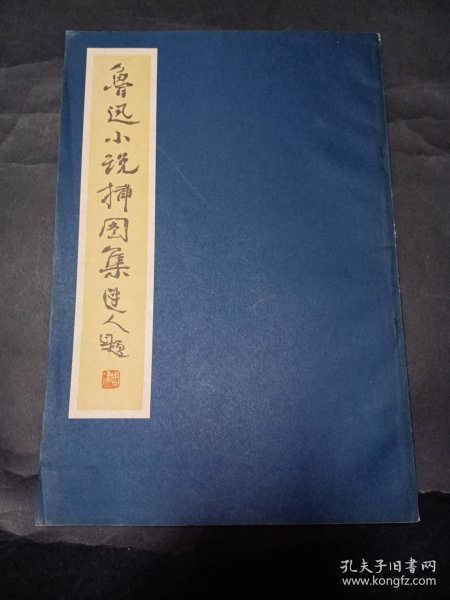 鲁迅小说插图集
建人题
孔夫子旧书网
www.kongfz.com